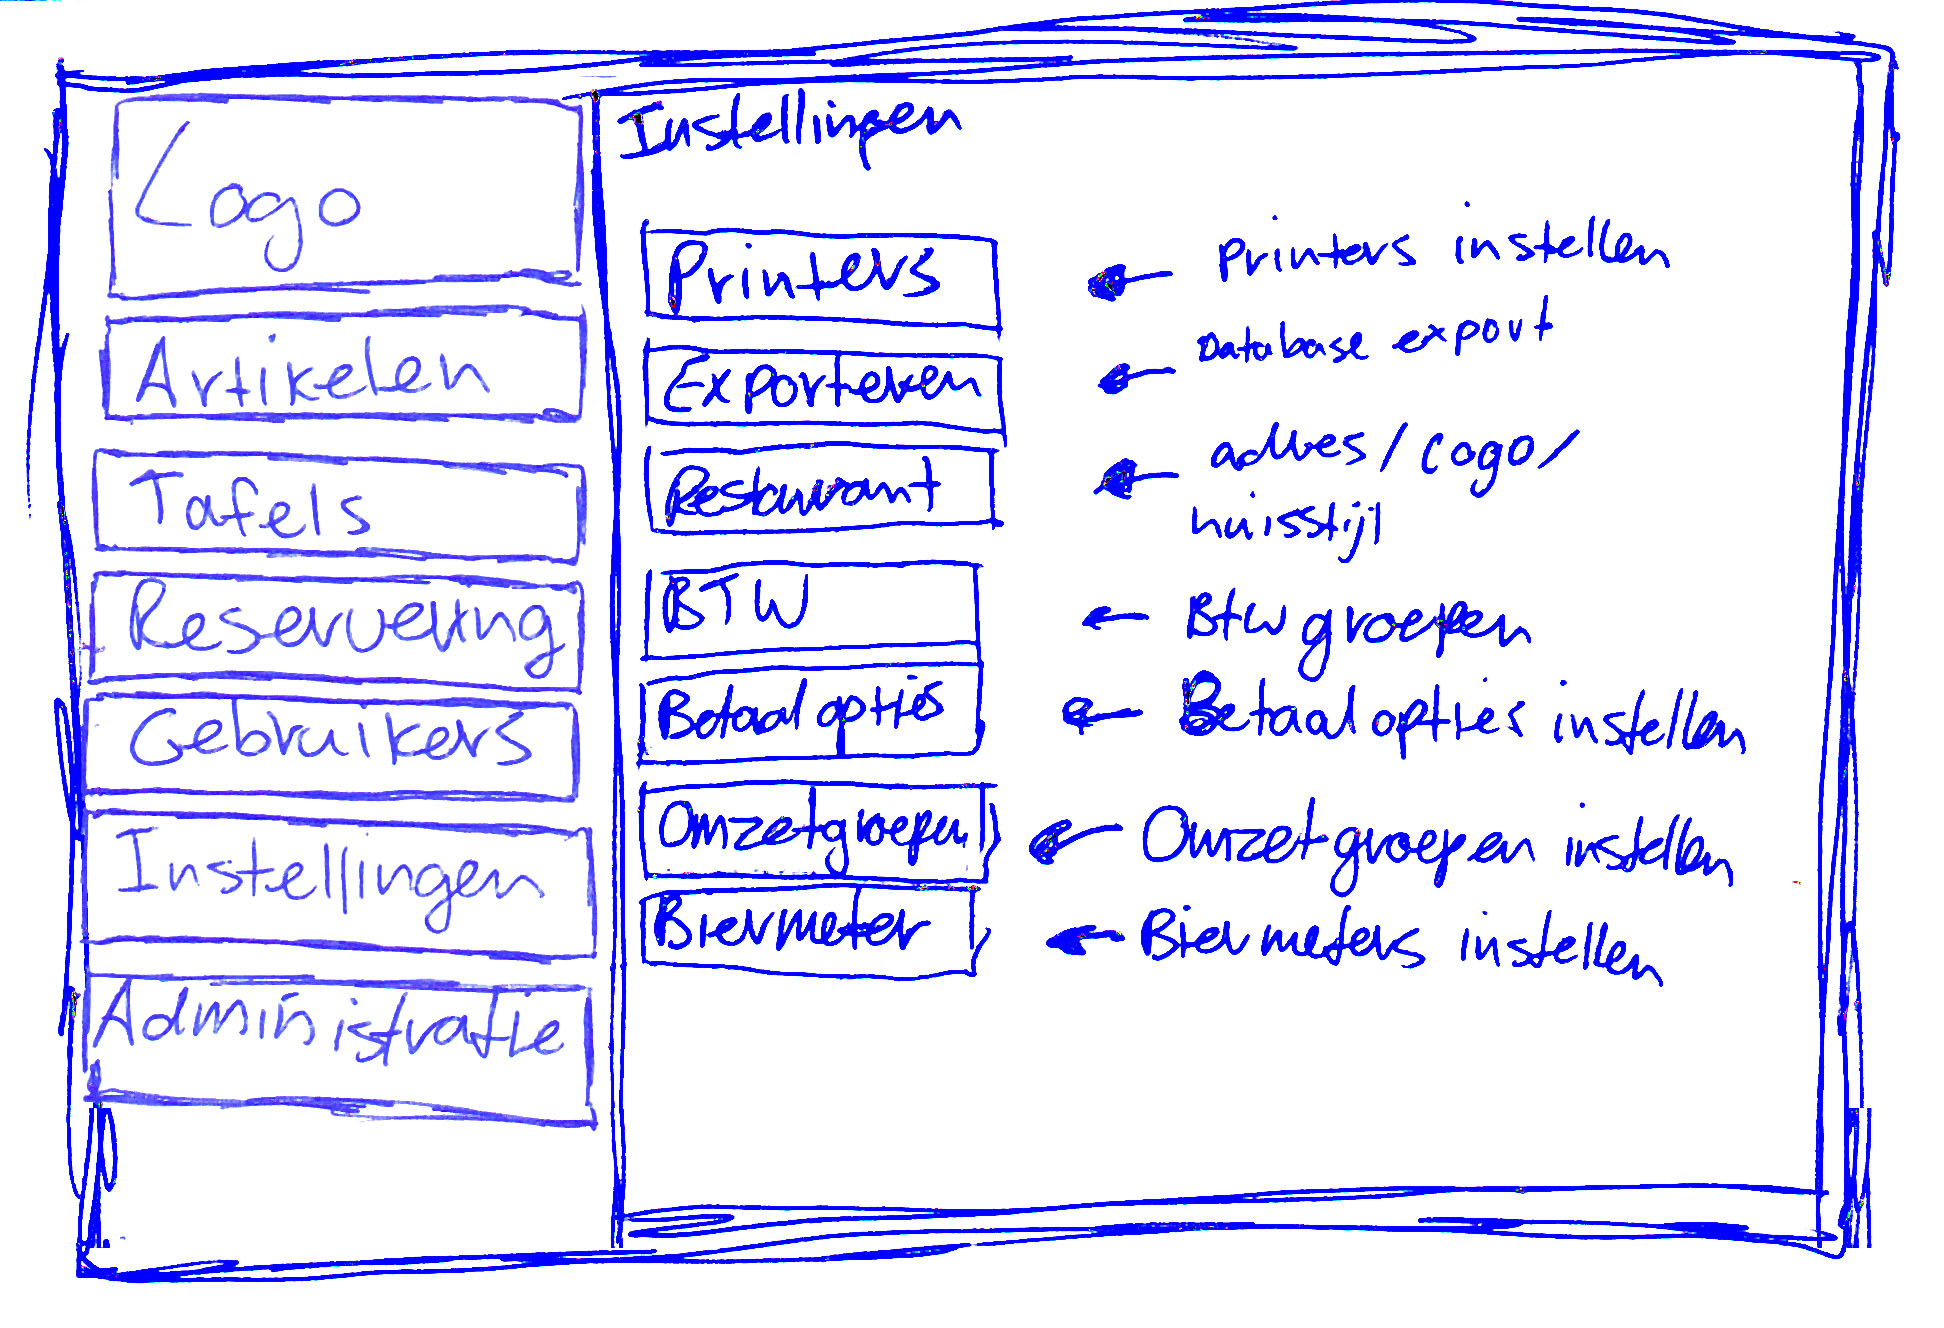 Logo
Artikelen
Tafels
Reservering
Gebruikers
Instellingen
Administratie
Instellingen
Printers
Printers instellen
Exporteren
Database export
Restaurant
adres/logo/
huisstijl
BTW
Btw groepen
Betaal opties
Betaal opties instellen
Omzetgroepen
Omzetgroepen instellen
Biermeter
Biermeters instellen